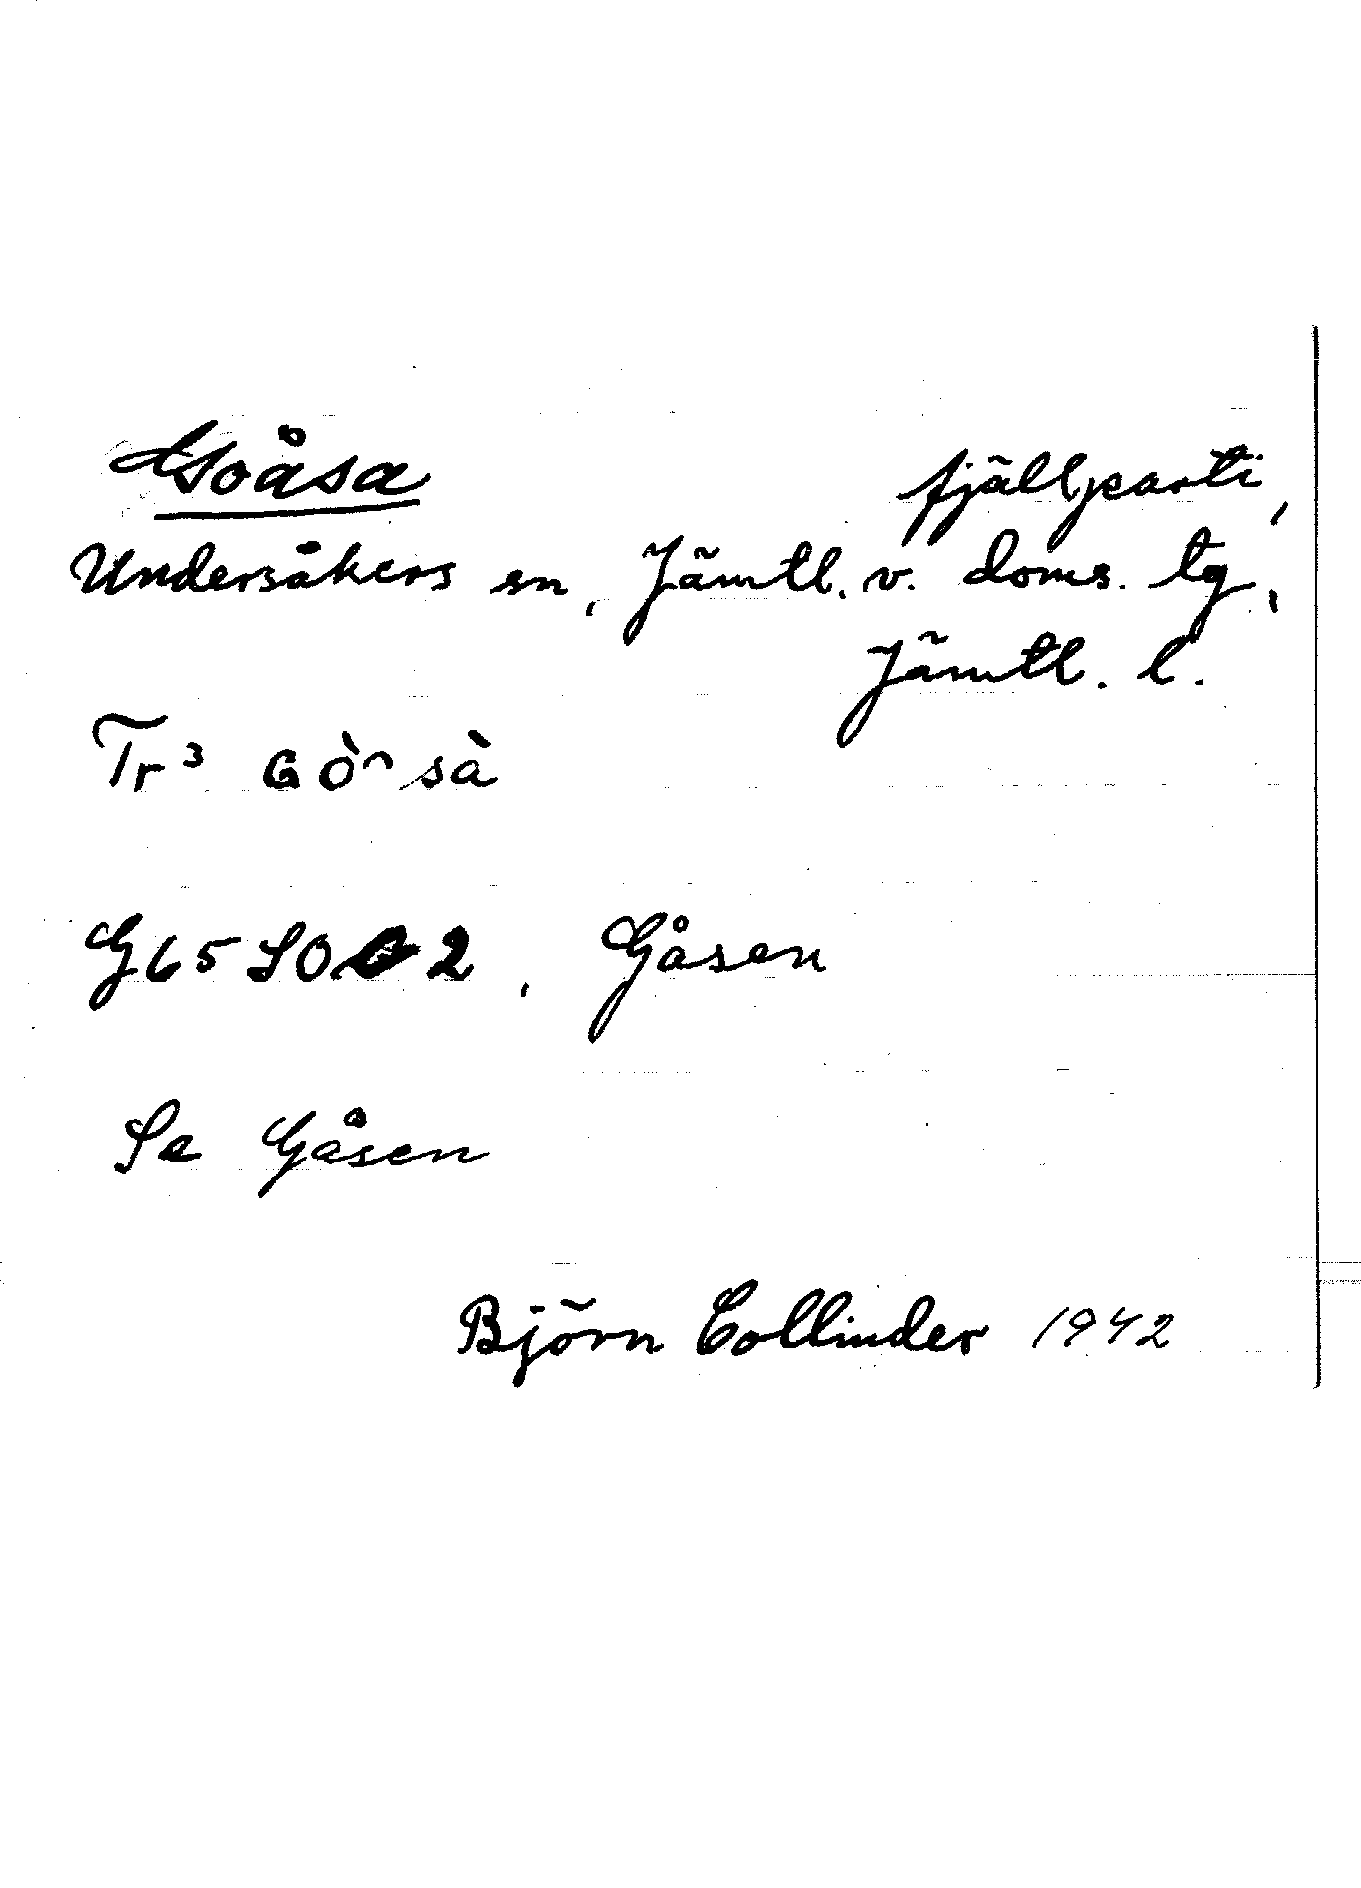 Goåsa fjällparti,
Undersåkers sn, Jämtl. v. doms. tg,
Jämtl. l.
Tr³ Gò̀ᵔsà
G65 SO 2, Gåsen
Se Gåsen
Björn Collinder 1942